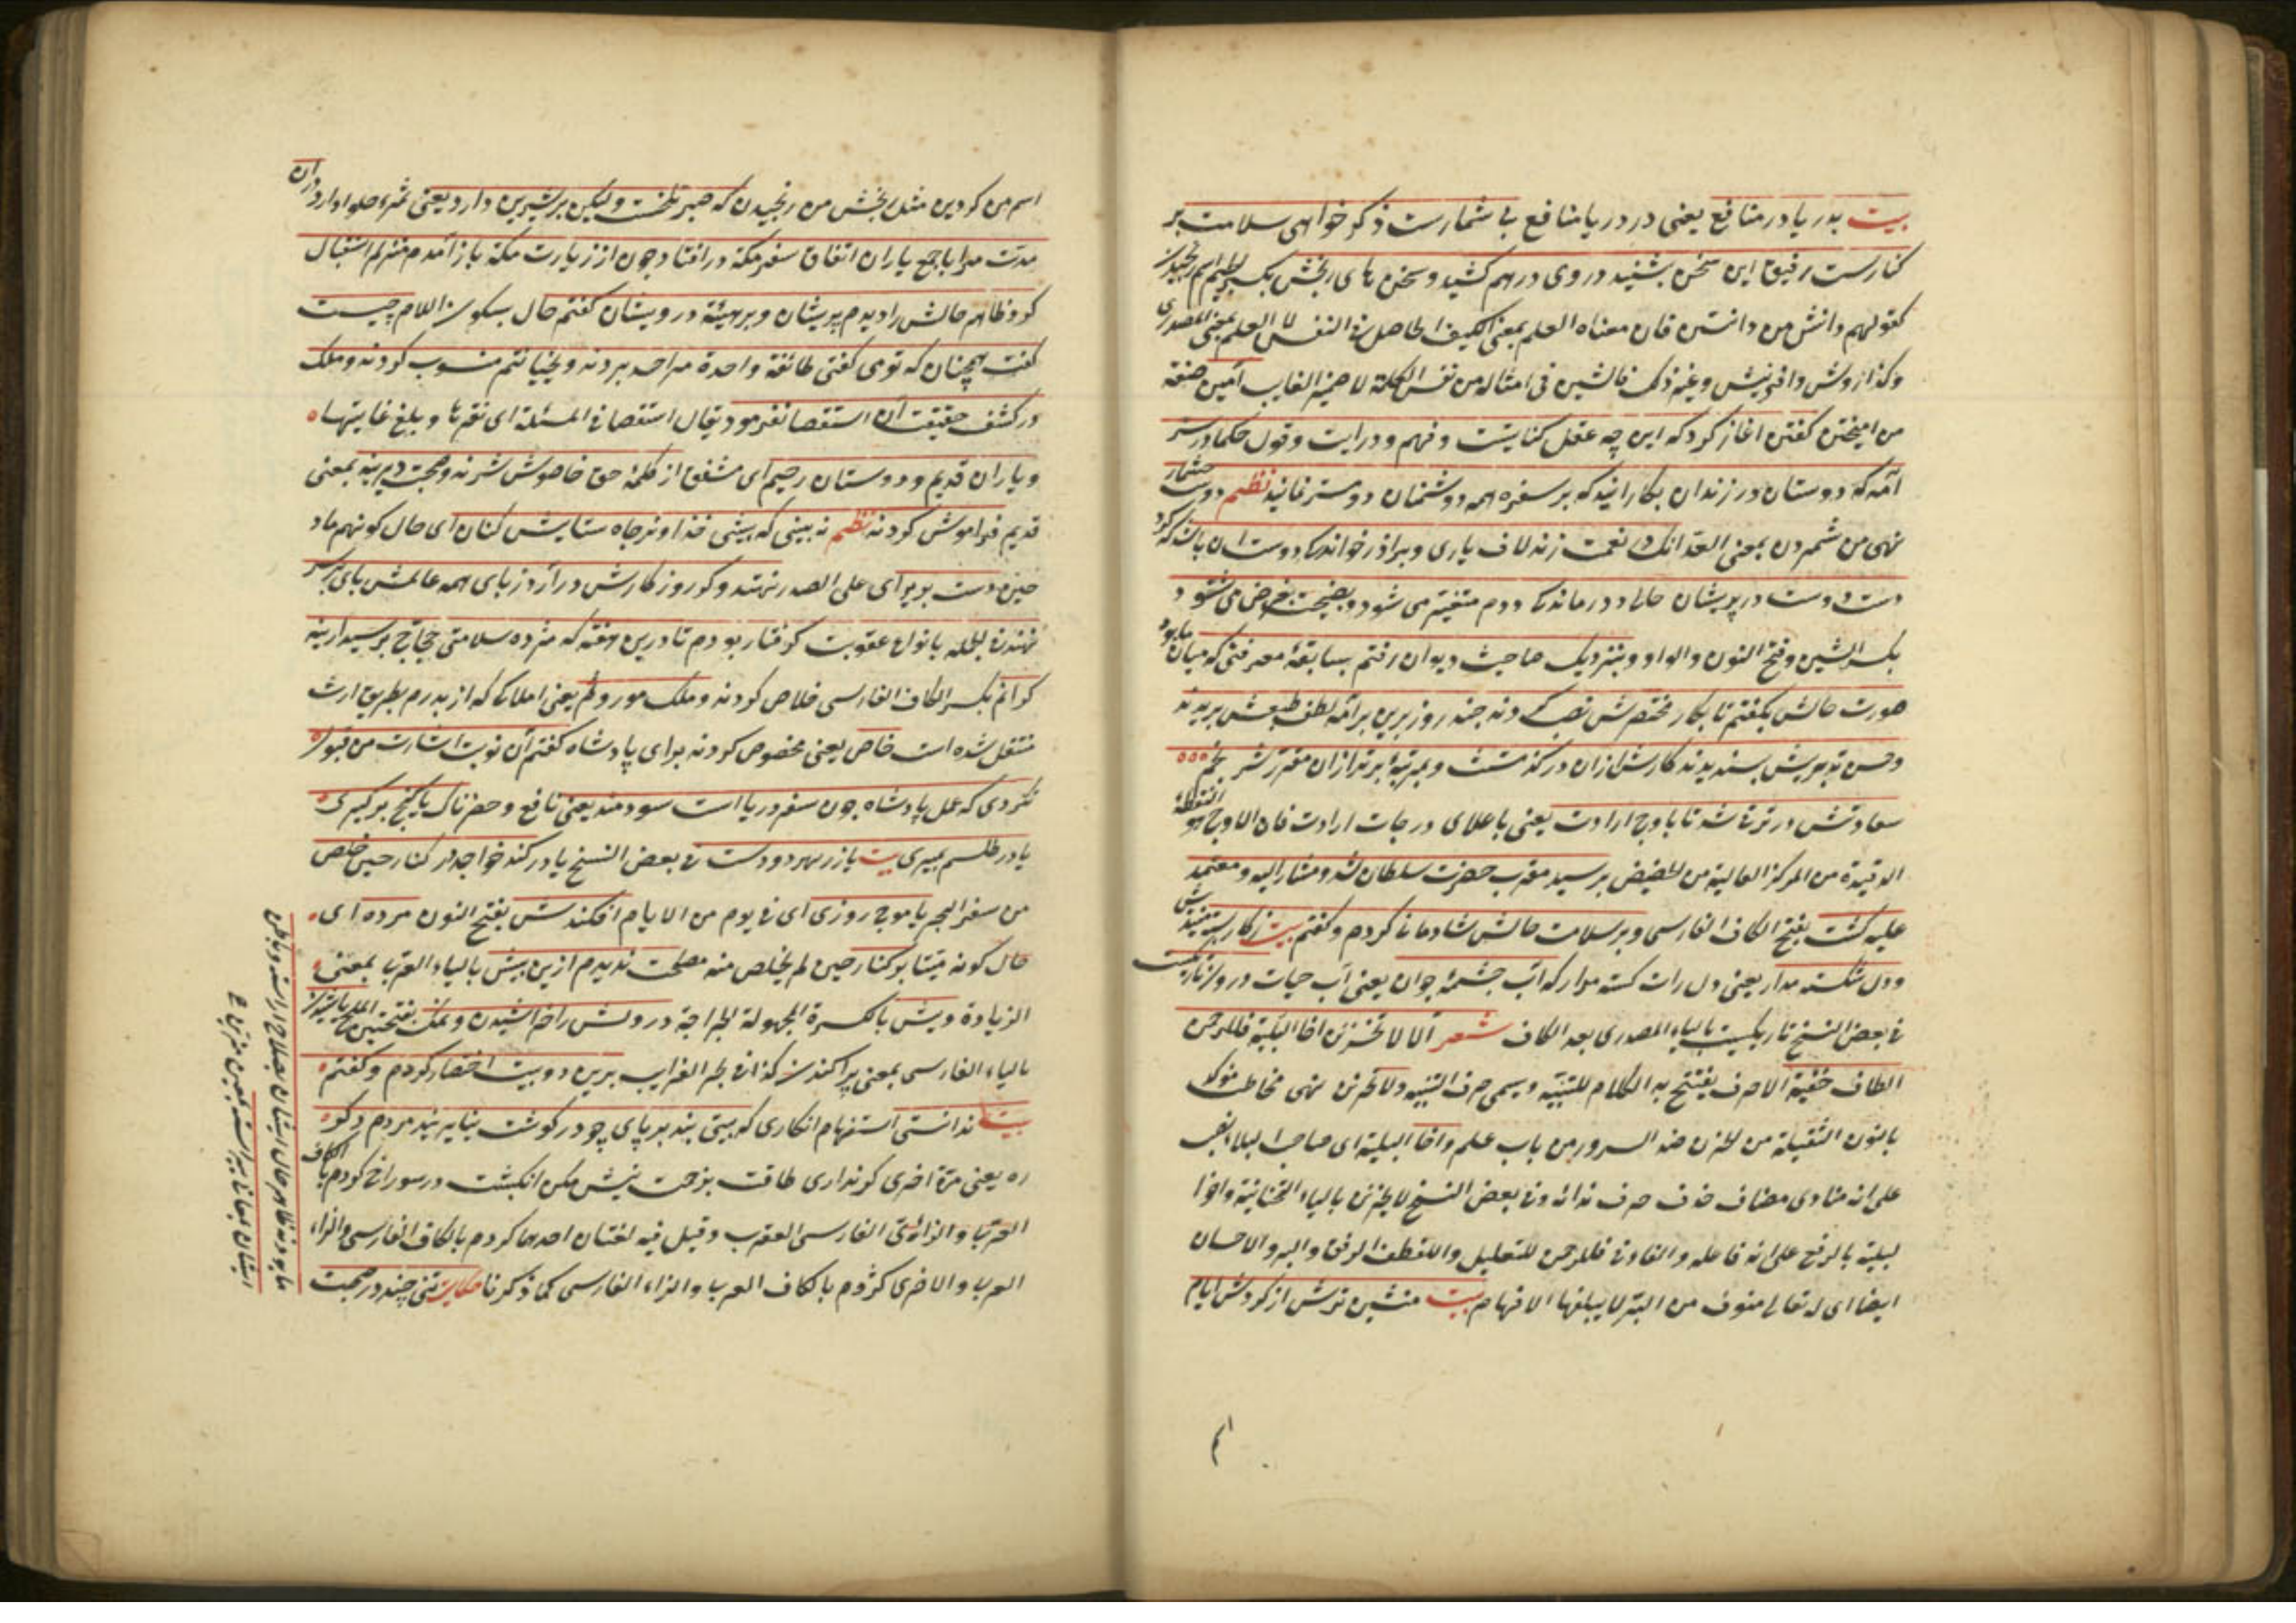 بيت بدريا در منافع يعنى در دريا منافع بى شمارست ذكر خواهى سلامت بر
كنارست رفيق اين سخن بشنيد و روى درهم كشيد و سخن هاى رنجش بكسر الجيم اسم رنجيدن
كقولهم دانش من دانستن فان معناه العلم بمعنى الكيف الحاصل فى النفس لا العلم بمعنى المصدرى
وكذا روش و آفرينش وغير ذلك فالشين فى امثاله من نفس الكلمة لا ضمير الغايب آميز صفة
من آميختن گفتن آغاز كرد كه اين چه عقل كفايتست و فهم و درايت و قول حكما درست
آمد كه دوستان در زندان بكار آيند كه بر سفره همه دوشمنان دوست نمايند نظم دوست مشمار
نهى من شمردن بمعنى العد آنك در نعمت زند لاف يارى و برادر خواندگى دوست آن باشد كه گيرد
دست دوست در پريشان حالى و درماندگى ديدم متغير مى شود و نصيحت بغرض مى شنود
بكسر الشين وفتح النون والواو و بنزديك صاحب ديوان رفتم بسابقۀ معرفتى كه ميان ما بود
صورت حالش بگفتم تا بكار مختصرش نصب كردند چند روز برين برآمد لطف طبعش بديدند
وحسن تدبيرش پسنديدند كارش ازان درگذشت و بمرتبۀ برتر ازان مقرر شد نجم
سعادتش در ترقى شد تا باوج ارادت يعنى باعلاى درجات ارادت فان الاوج هو النقطة
البعيدة من المركز العالية من الحضيض برسيد مقرب حضرت سلطان شد و مشار اليه و معتمد
عليه گشت بفتح الكاف الفارسى و بر سلامت حالش شادمانى كردم و گفتم بيت ز كار بسته مينديش
و دل شكسته مدار يعنى دل را شكسته مدار كه آب چشمۀ حيوان يعنى آب حيات درون تاريكيست
فى بعض النسخ تاريكيست بالياء المصدرى بعد الكاف شعر الا لا تحزنن اخا البلية فللرحمن
الطاف خفية الا حرف يفتتح به الكلام للتنبيه و يسمى حرف التنبيه و لا تحزنن نهى مخاطب مؤكد
بالنون الثقيلة من الحزن ضد السرور من باب علم و اخا البلية اى صاحب البلاء نصب
على انه منادى مضاف حذف حرف ندائه و فى بعض النسخ لا يحزنن بالياء التحتانية و اخو ا
لبلية بالرفع على انه فاعله و الفاء فى فللرحمن للتعليل و اللطف الرفق و البر و الاحسان
ايضا اى لله تعالى صنوف من البر لا يبلغها الافهام بيت منشين ترش از گردش ايام
اسم من كردين مثل رنجش من رنجيدن كه صبر تلخست و ليكن بر شيرين دارد يعنى ثمرۀ حلوا دارد دران
مدت مرا با جمع ياران اتفاق سفر مكه در افتاد چون از زيارت مكه باز آمدم دو منزلم استقبال
كرد ظاهر حالش را ديدم پريشان و بر هيئة درويشان گفتم حال بسكون اللام چيست
گفت همچنان كه تو مى گفتى طائفة واحدة مرا حسد بردند و بخيانتم منسوب كردند و ملك
در كشف حقيقت آن استقصا نفرمود يقال استقصا فى المسئلة اى تقرها و بلغ غايتها
و ياران قديم و دوستان رحيم اى مشفق از كلمۀ حق خاموش شدند و صحبت ديرينه بمعنى
قديم فراموش كردند نظم نه بينى كه پيش خداوند جاه ستايش كنان اى حال كونهم ماد
حين دست بر بر اى على الصدر نهند و گر روزگارش در آرد ز پاى همه عالمش پاى بر سر
نهند فى الجمله بانواع عقوبت گرفتار بودم تا درين هفته كه مژده سلامتى حجاج برسيد از بند
گرانم بكسر الكاف الفارسى خلاص كردند و ملك موروثم يعنى املاكى كه از پدرم بطريق ارث
منتقل شده است خاص يعنى مخصوص كردند براى پادشاه گفتم آن نوبت اشارت من قبول
نكردى كه عمل پادشاه چون سفر دريا است سودمند يعنى نافع و خطرناك يا گنج برگيرى
يا در طلسم بميرى بيت يا زر بهر دو دست فى بعض النسخ يا در كند خواجه در كنار حين خلص
من سفر البحر يا موج روزى اى فى يوم من الايام افكندش بفتح النون مرده اى
حال كونه ميتا بر كنار حين لم يخلص منه مصلحت نديدم ازين بيش بالياء العربى بمعنى
الزيادة ريش بالكسرة المجهولة الجراحة درونش را خراشيدن و نمك بفتحتين الملح پاشيدن
بالياء الفارسى بمعنى پراكندن كذا فى بحر الغرايب برين دو بيت اختصار كردم و گفتم
بيت ندانستى استفهام انكارى كه بينى بند بر پاى چو در گوشت نيايد پند مردم دگر
ره يعنى مرة اخرى گر ندارى طاقت نيش مكن انگشت در سوراخ كژدم بالكاف
العربى و الزاء الفارسى العقرب و قيل فيه لغتان احدهما گردم بالكاف الفارسى و الزاء
العربى و الاخرى كژدم بالكاف العربى و الزاء الفارسى كما ذكرنا حكايت تنى چند در صحبت